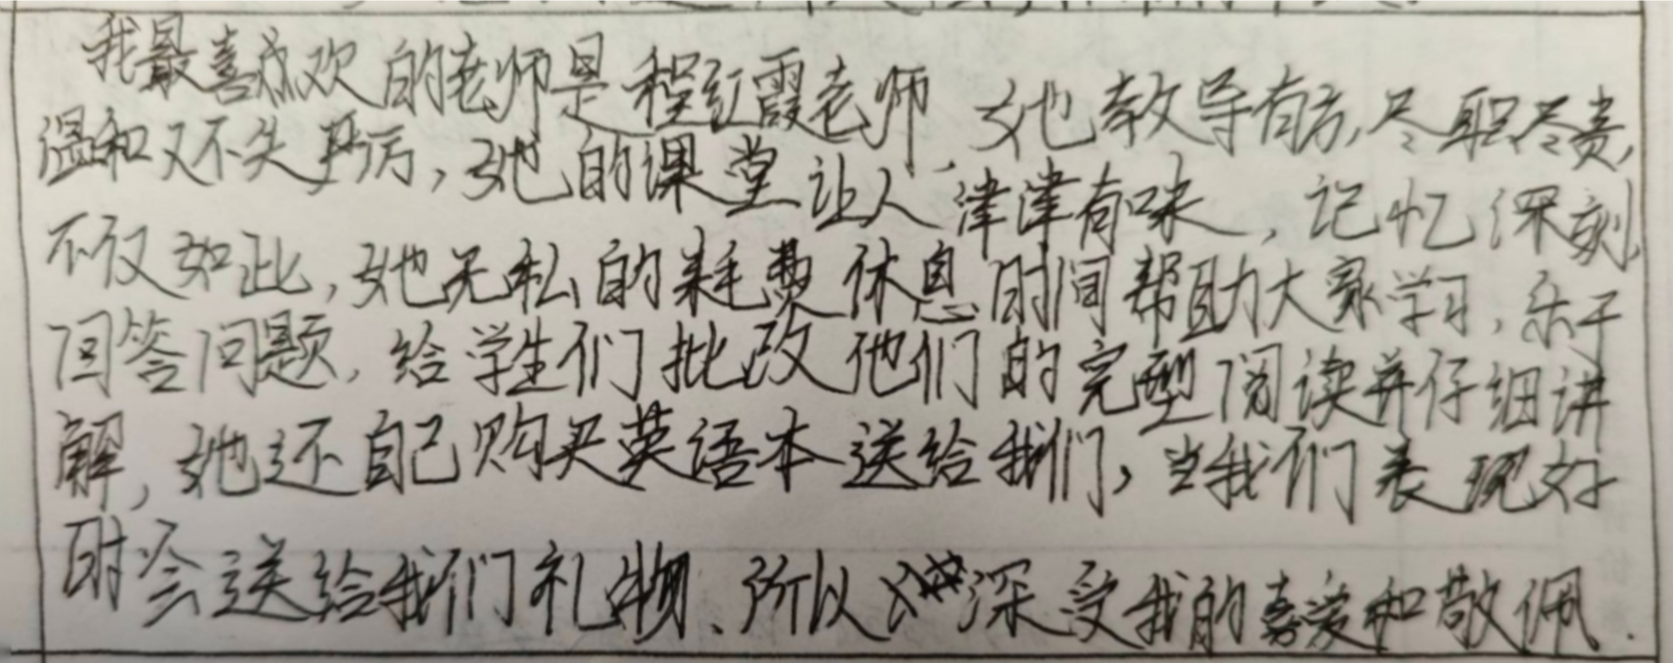 我最喜欢的老师是程红霞老师，她教导有方，尽职尽责，
温和又不失严厉，她的课堂让人津津有味，记忆深刻，
不仅如此，她无私的耗费休息时间帮助大家学习，乐于
回答问题，给学生们批改他们的完型阅读并仔细讲
解，她还自己购买英语本送给我们，当我们表现好
时会送给我们礼物、所以深受我的喜爱和敬佩.